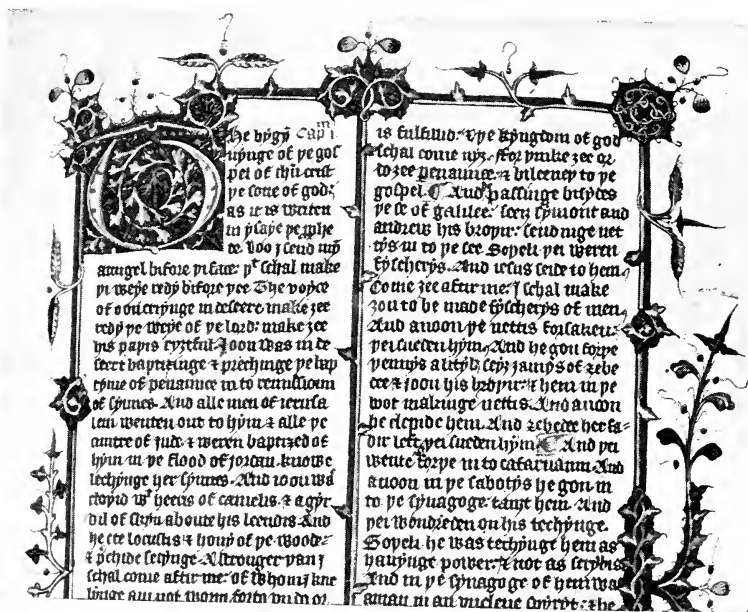 The bygyn Cap i m
nynge of þe gos
pel of ihu crist
þe sone of god:
as it is writen
in ysaye þe prophe
te. loo i send my
aungel bifore þi face: þt schal make
þi weye redy bifore þee The voyce
of oon cryinge in deseert: make ȝee
redy þe weye of þe lord: make ȝee
his paþis ryȝtful Joon was in de
seert baptizinge & prechinge þe bap
tyme of penaunce in to remissioun
of synnes. And alle men of ierusa
lem wenten out to hym & alle þe
cuntre of jude & weren baptized of
hym in þe flood of jordan. knowe
lechynge her synnes. And ioon was
cloþid wt heeris of camelis & a gyr
dil of skyn aboute his leendis And
he eete locustis & hony of þe woode:
& prechide seiynge. A stronger þan j
schal come aftir me: of whom j kne
linge am not worþi forto vndo or
is fulfillid: & þe kyngdom of god
schal come nyȝ. ffor þinke ȝee or
do ȝee penaunce: & bileeuey to þe
gospel. And passinge bisydes
þe se of galilee: seey symont and
andrew his broþir: sendinge net
tys in to þe see Soþeli þei weren
fyscherys. And iesus seide to hem
Come ȝee aftir me: I schal make
ȝou to be made fyscherys of men
And anoon þe nettis forsaken:
þei sueden hym. And he gon forþe
þennys a lityl: seyȝ jamys of zebe
dee & joon his broþir: & hem in þe
boot makinge nettis. And anoon
he clepide hem. And zebede her fa-
dir left: þei sueden hym And þei
wente forþe in to cafarnaum And
anoon in þe sabotys he gon in
to þe synagoge: tauȝt hem. And
þei wondreden on his techynge.
Soþeli he was techynge hem as
hauynge power: & not as scrybis
And in þe synagoge of hem was
a man in an vnclene spyryt: & he